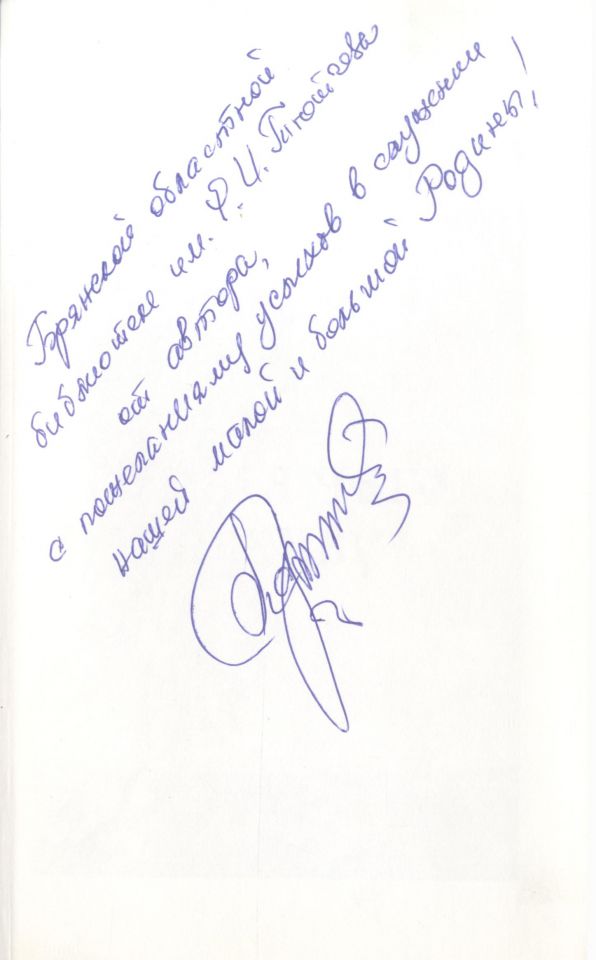 Брянской областной
библиотеке им. Ф.И. Тютчева
от автора,
с пожеланиями успехов в служении
нашей малой и большой Родины!